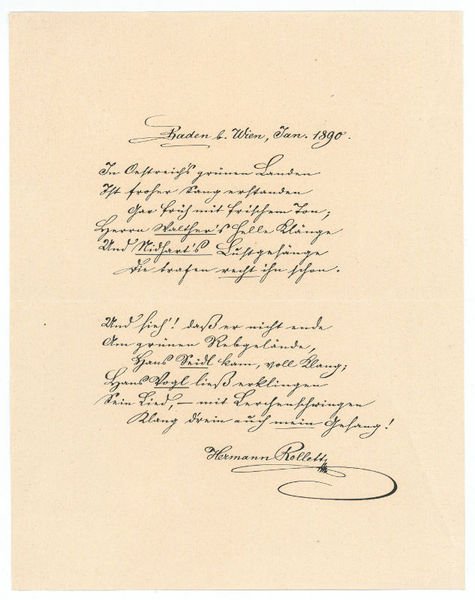 Baden b. Wien, Jan. 1890.
In Oestreich's grünen Landen
Ist froher Sang erstanden
Gar früh mit frischem Ton;
Herrn Walther's helle Klänge
Und Nidhart's Lustgesänge
Die trafen recht ihn schon.
Und sieh'! daß er nicht ende
Am grünen Rebgelände,
Hans Seidl kam, voll Klang;
Hans Vogl ließ erklingen
Sein Lied, – mit Lerchenschwingen
Klang drein auch mein Gesang!
Hermann Rollett